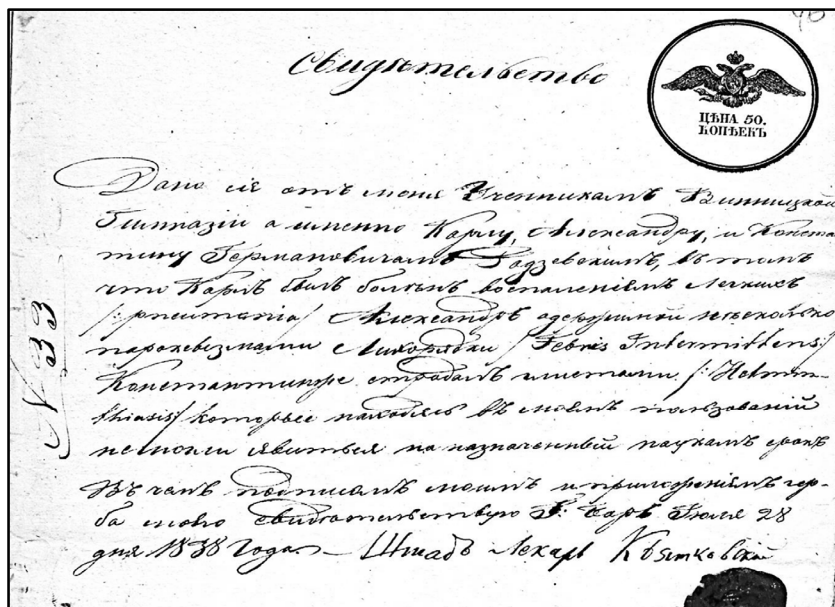 Свидѣтельство
ЦѢНА 50.
КОПѢЕКЪ
Дано сіе отъ меня Ученикамъ Винницкой
Гимназіи а именно Карлу, Александру, и Конста
тину Германовичамъ Годзевскимъ, въ томъ
что Карлъ былъ боленъ воспаленіемъ легкихъ
/:pneumania/ Александръ одержимой
пароксизмами Лихорадки /Febris Intermittens:/
Константинъ же страдалъ глистами /:Helmin
thiasis/ которые находясь въ моемъ пользованій
немогли явиться на назначенный наукамъ срокъ
Въ чемъ подписомъ моимъ и приложеніемъ гер-
ба моего свидѣтельствую Іюля 28
дня 1838 Года – Штабъ Лекарь Квятковскій
N 33